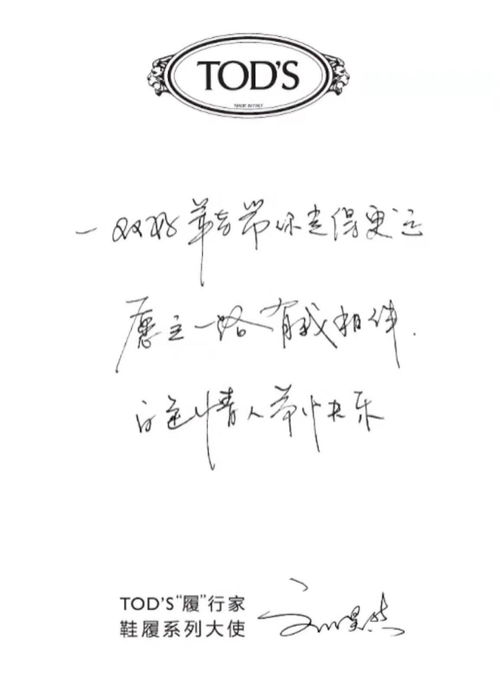 TOD'S
MADE IN ITALY
一双好鞋带你走得更远
愿这一路有我相伴.
白色情人节快乐
TOD'S“履”行家
鞋履系列大使 刘昊然